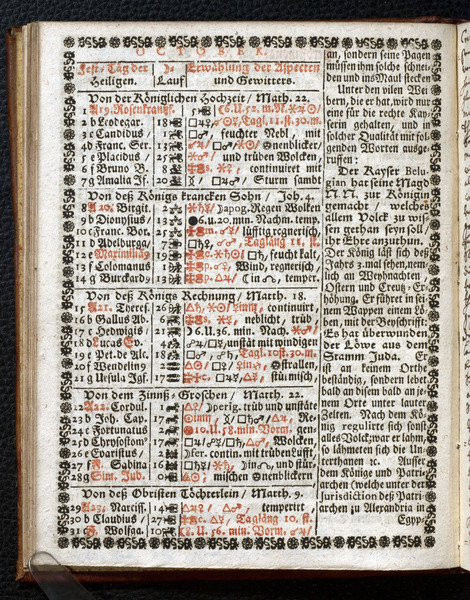 OCTOBER.
Fest-Tag der Heiligen.
Lauf
Erwählung der Aspecten und Gewitters.
Von der Königlichen Hochzeit / Matth. 22.
1 A19. Rosenkrantzf. 5 6. U. 52. m. Nk.
2 b Leodegar. 18 Tagl. 11. st. 30. m.
3 c Candidus feuchter Nebl, mit
4 d Franc. Ser. 13 Sonnenblicker/
5 e Placidus 25 und trüben Wolcken,
6 f Bruno B. 8 continuirt mit
7 g Amalia Jf. 20 Sturm sambt
Von deß Königs krancken Sohn / Joh. 4.
8 A20. Birgit. 2 Regen Wolken
9 b Dionysius 13 6. u. 20. min. Nachm. temp.
10 c Franc. Bor. 25 lüfftig regnerisch,
11 d Adelburga 7 Taglang 11. st.
12 e Maximilia 19 feucht kalt,
13 f Colomanus Wind, regnerisch/
14 g Burckard 13 temper.
Von deß Königs Rechnung / Matth. 18.
15 A21. Theres. 26 continuirt,
16 b Gallus Ab. neblicht, trüb,
17 c Hedwigis 21 6. U. 36. min. Nach.
18 d Lucas Ev. 4 unstät mit windigen
19 e Pet. de Alc. 18 Tagl. 10. st. 30. m.
20 f Wendeling 2 Oststrallen,
21 g Ursula Jgf. 17 stürmisch,
Von dem Zinnß-Groschen / Matth. 22.
12 A22. Cordul. 1 trüb und unstäte
23 b Joh. Cap. 15 Re-
24 c Fortunatus 10. U. 58. min. Vorm. gen-
25 d Chrysostom 15 Wolken
26 e Evaristus 2 continuirt mit trüben Lufft,
27 f F. Sabina 16 und stür-
28 g Sim. Jud. mischen Sonnenblickern
Von deß Obristen Töchterlein / Matth. 9.
29 A23. Narciss. 14 temperirt
30 b Claudius 27 Taglang 10. st.
31 F. Wolfga. 10 8. U. 56. min. Vorm.
an, sondern seine Pagen
müssen ihm solche schnei-
den und ins Maul stecken
Unter den vilen Wei-
bern, die er hat, wird nur
eine für die rechte Kay-
serin gehalten, und in
solcher Qualität mit fol-
genden Worten ausge-
ruffen:
Der Kayser Bel-
gian hat seine Magd
N. N. zur Königin
gemacht / welches
allem Volck zu wis-
sen gethan seyn soll/
ihr Ehre anzuthun.
Der König läst sich deß
Jahrs 3. mal sehen, nem-
lich an Weyhnachten
Ostern und Creutz-Er-
höhung. Er führet in sei-
nem Wappen einem Lö-
ben, mit der Beyschrifft:
Es hat überwunden
der Löwe aus dem
Stamm Juda. Er
ist an keinem Orthe
beständig, sondern lebet
bald an disem bald an je-
nem Ort unter lauter
Zelten. Nach dem Kö-
nig regulirte sich sonst
alles Volck; war er lahm,
so lähmeten sich die Un-
terthanen ec. Ausser
dem Könige und Patri-
archen (welche unter der
Jurisdiction deß Patri-
archen zu Alexandria in
Egyp-